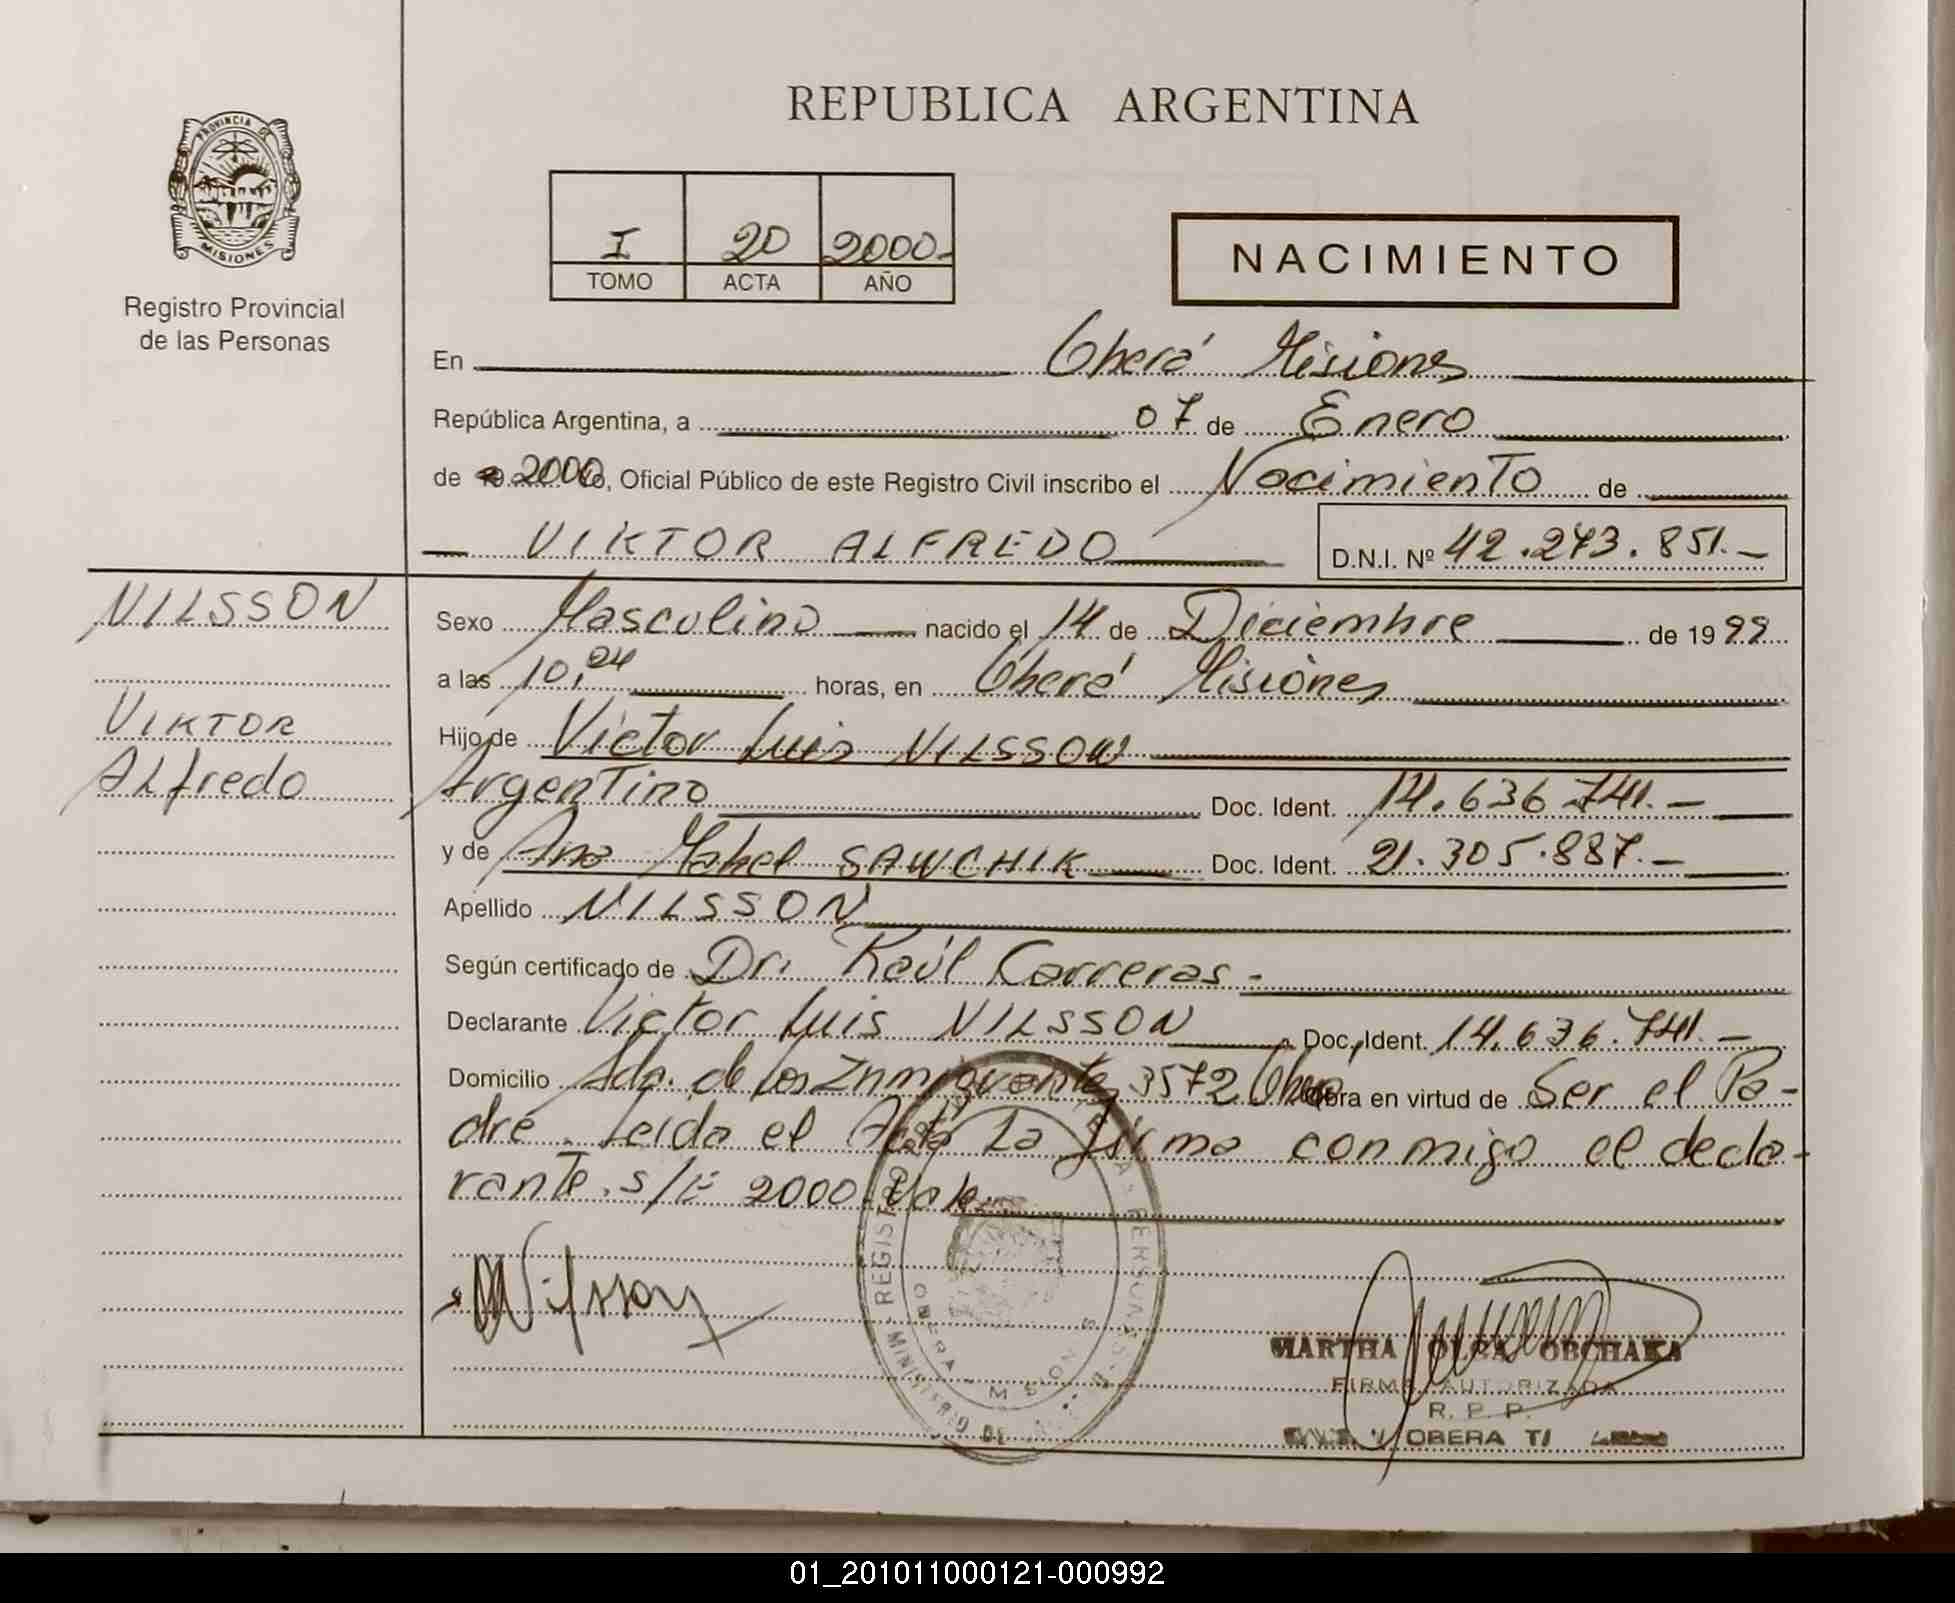 REPUBLICA ARGENTINA
PROVINCIA DE
MISIONES
Registro Provincial
de las Personas
I 20 2000-
TOMO ACTA AÑO
NACIMIENTO
En Oberá Misiones
República Argentina, a 07 de Enero
de 2000, Oficial Público de este Registro Civil inscribo el Nacimiento de
VIKTOR ALFREDO D.N.I. Nº 42.273.851.-
NILSSON
VIKTOR
ALfredo
Sexo Masculino nacido el 14 de Diciembre de 1999
a las 10,24 horas, en Oberá Misiones
Hijo de Victor Luis NILSSON
Argentino Doc. Ident. 14.636.741.-
y de Ana Mabel SAWCHIK Doc. Ident. 21.305.887.-
Apellido NILSSON
Según certificado de Dr. Raúl Carreras-
Declarante Victor Luis NILSSON Doc. Ident. 14.636.741.-
Domicilio Ada. de los Inmigrantes 3572 Oberá obra en virtud de Ser el Pa-
dre. Leida el Acta La firma conmigo el decla-
rante. s/l: 2000. Vale.
Nilsson
REGISTRO PERSONAS
OBERA MISIONES
MINISTERIO DE
MARTHA OLGA OBCHAKA
FIRMA AUTORIZADA
R. P. P.
OBERA
01_201011000121-000992